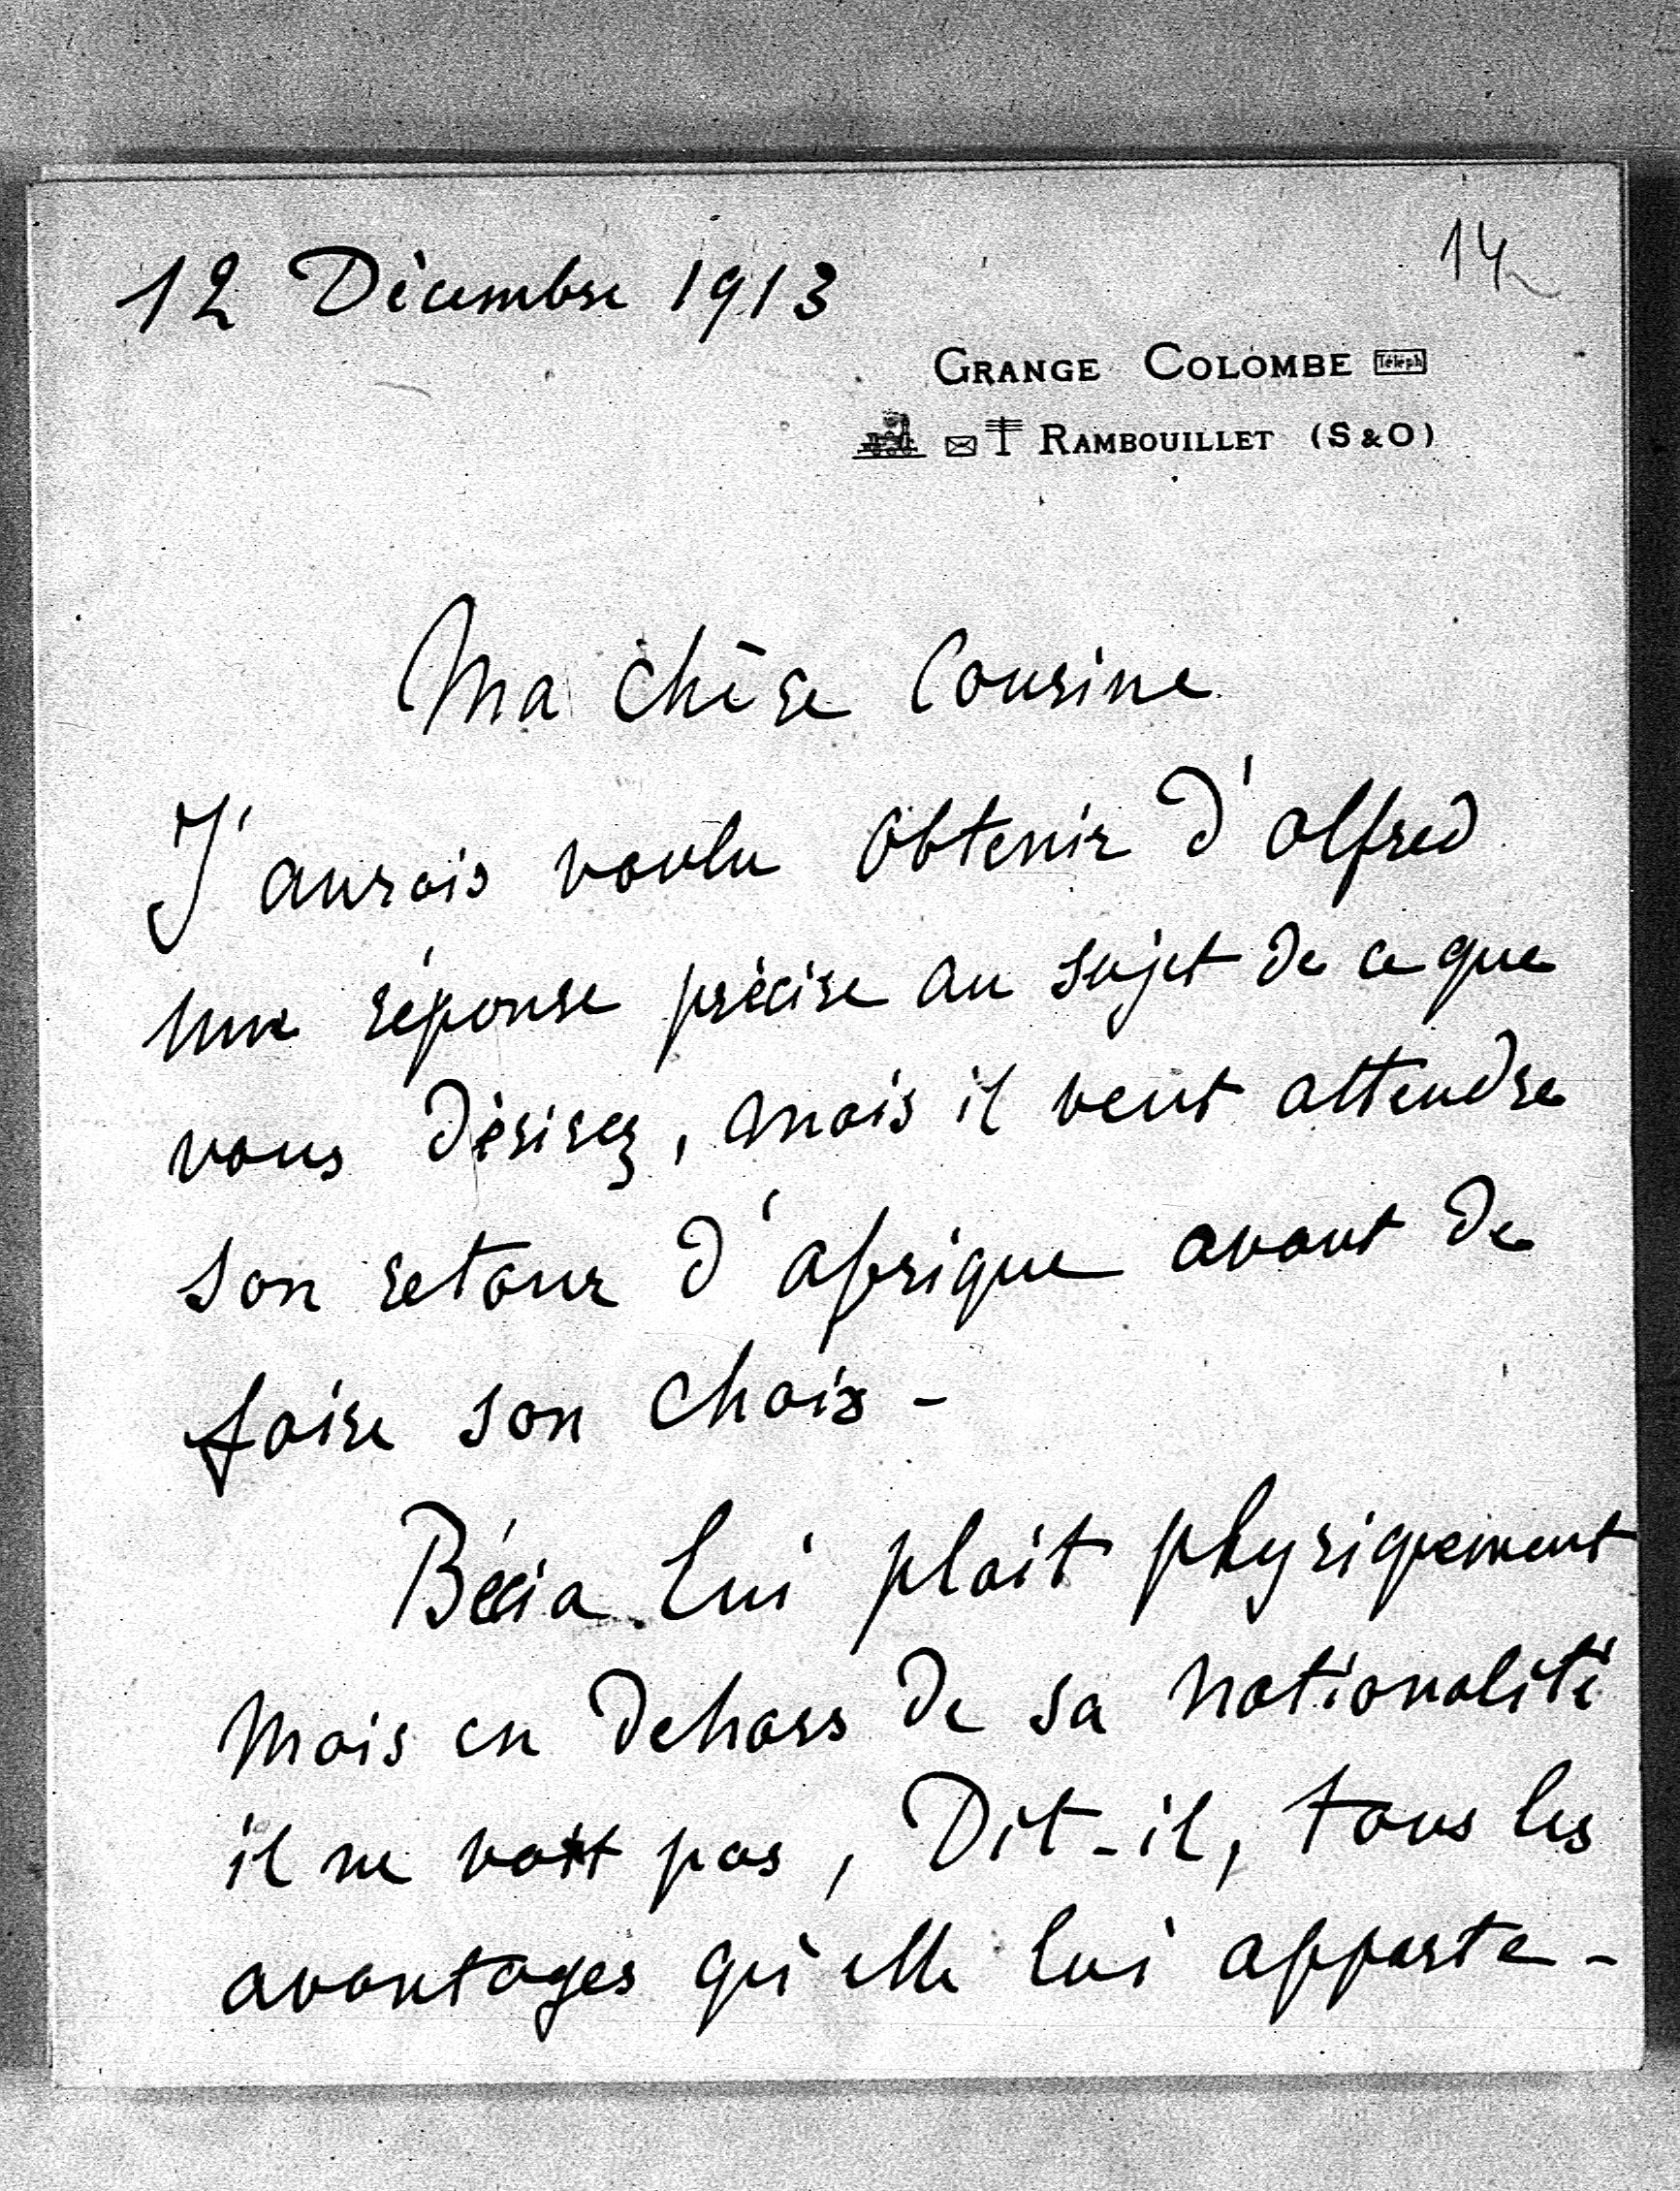 14
12 Décembre 1913
GRANGE COLOMBE Téléph
RAMBOUILLET (S & O)
Ma chère Cousine
J'aurais voulu obtenir d'alfred
une réponse précise au sujet de ce que
vous désirez, mais il veut attendre
son retour d'afrique avant de
faire son choix -
Bécia lui plait physiquement
mais en dehors de sa nationalité
il ne voit pas, Dit-il, tous les
avantages qu'elle lui apporte -